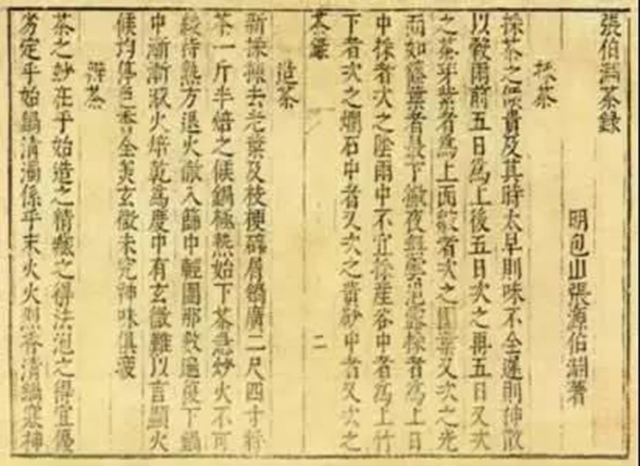 張伯淵茶録
明包山張源伯淵著
採茶
採茶之候貴及其時太早則味不全遲則神散
以穀雨前五日爲上後五日次之再五日又次
之茶芽紫者爲上面皺者次之團葉又次之光
而如篠葉者最下徹夜無雲浥露採者爲上日
中採者次之陰雨中不宜採産谷中者爲上竹
下者次之爛石中者又次之黄砂中者又次之
茶録 二
造茶
新採揀去老葉及枝梗碎屑鍋廣二尺四寸將
茶一斤半焙之候鍋極熱始下茶急炒火不可
緩待熟方退火徹入篩中輕團那數遍復下鍋
中漸漸減火焙乾爲度中有玄微難以言顯火
候均停色香全美玄微未究神味俱疲
辨茶
茶之妙在乎始造之精藏之得法泡之得宜優
劣定乎始鍋清濁係乎末火火烈香清鍋寒神